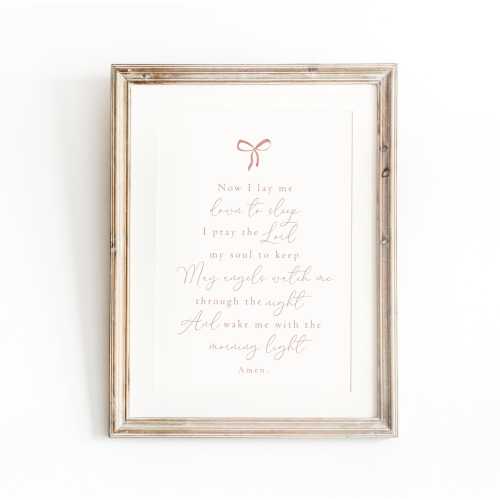 Now I lay me
down to sleep
I pray the Lord
my soul to keep
May angels watch me
through the night
And wake me with the
morning light
Amen.